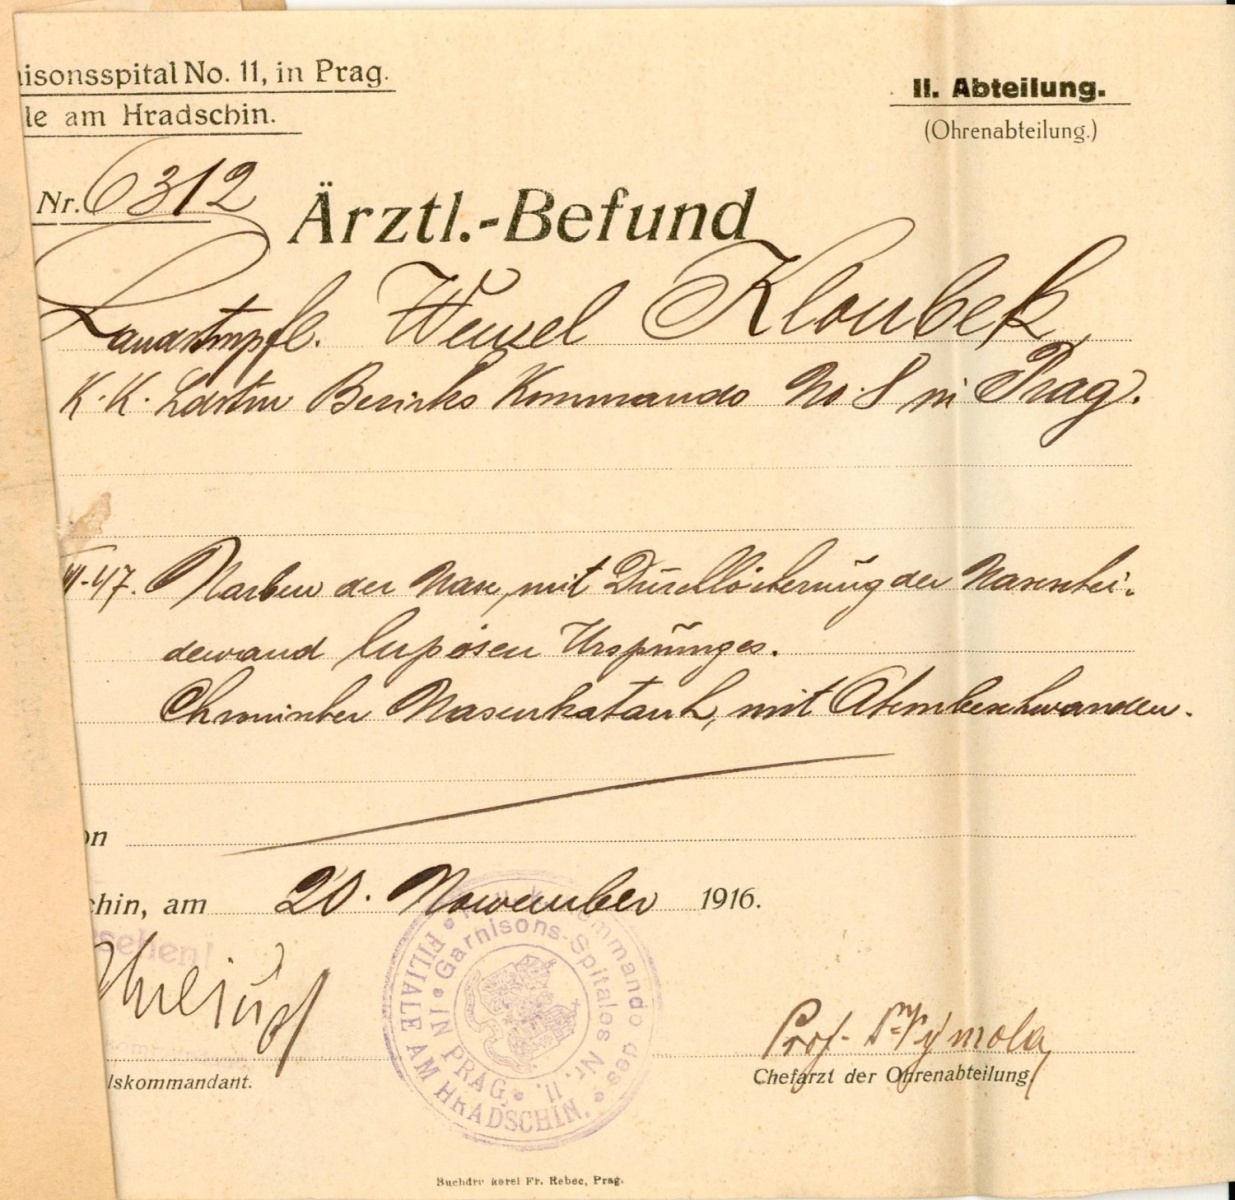 isonsspital No. 11, in Prag.
le am Hradschin.
II. Abteilung.
(Ohrenabteilung.)
Nr. 6312
Ärztl.-Befund
Landstmpfl. Wenzel Kloubek
K. K. Ldstm Bezirks Kommando No 8 in Prag.
47. Narben der Nase, mit Durchlöcherung der Nasenschei-
dewand lupösen Ursprunges.
Chronischer Nasenkatarrh, mit Atembeschwerden.
on
hin, am 20. November 1916.
sehen!
Kommando des Garnisons-Spitales Nr. 11. IN PRAG,
FILIALE AM HRADSCHIN.
Prof. Dr Vymola
lskommandant.
Chefarzt der Ohrenabteilung.
Buchdr korei Fr. Rebec, Prag.